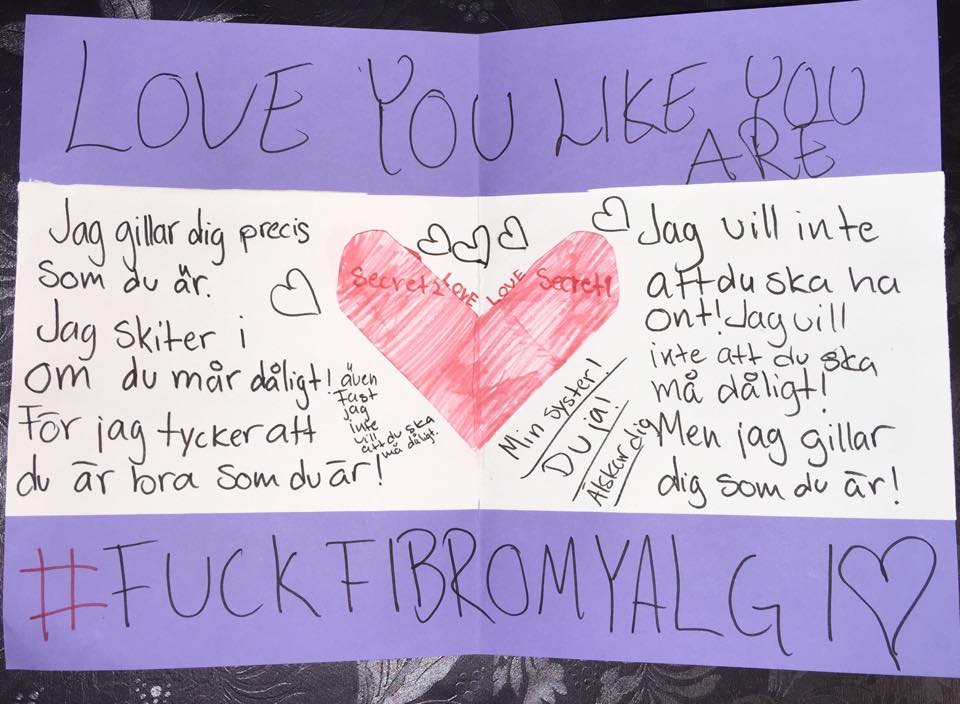 LOVE YOU LIKE YOU
ARE
Jag gillar dig precis
som du är.
Jag skiter i
om du mår dåligt!
För jag tycker att
du är bra som du är!
även
fast
jag
inte
vill
att du ska
må dåligt.
Secret 2
LOVE
LOVE
Secret 1
Min syster!
Du ja!
Älskar dig
Jag vill inte
att du ska ha
ont! Jag vill
inte att du ska
må dåligt!
Men jag gillar
dig som du är!
#FUCKFIBROMYALGI